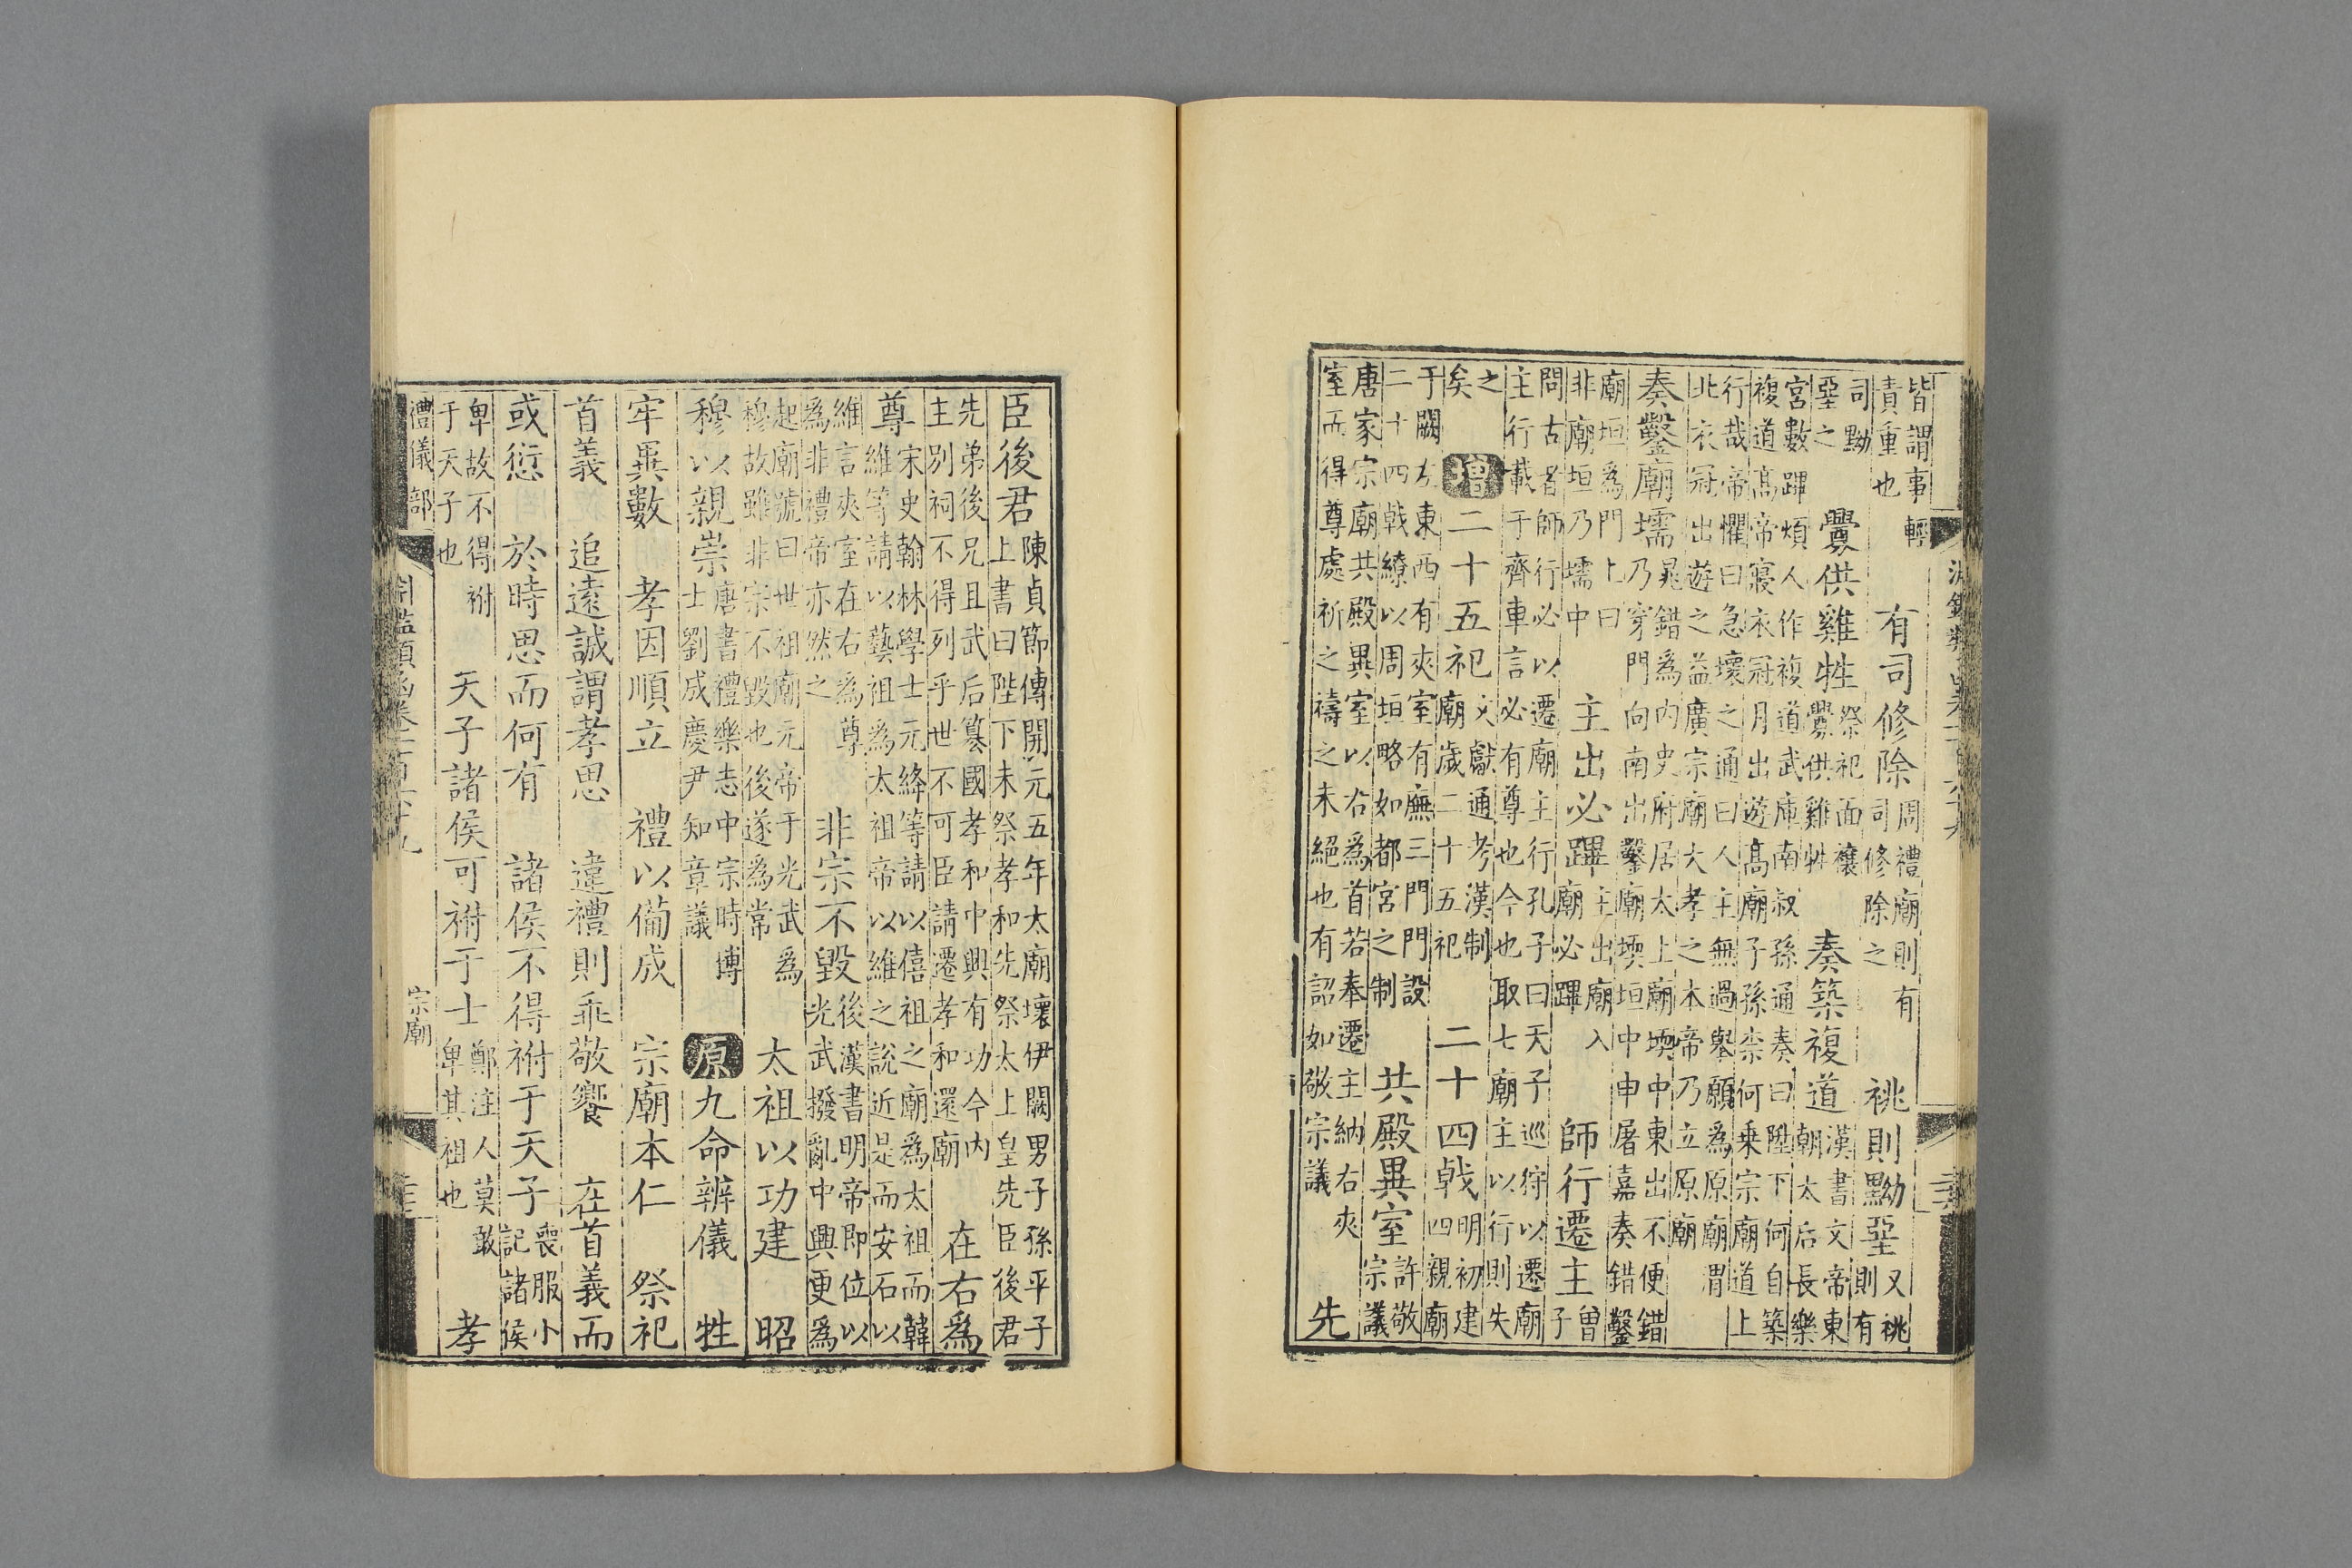 皆謂事輕
責重也
有司修除
周禮廟則有
司修除之
祧則黝堊
又祧
則有
司黝
堊之
釁供雞牲
祭祀面禳
釁供雞牲
奏築複道
漢書文帝東
朝太后長樂
宮數蹕煩人作複道武庫南叔孫通奏曰陛下何自築
複道高帝寢衣冠月出遊高廟子孫柰何乗宗廟道上
行哉帝懼曰急壞之通曰人主無過舉願為原廟渭
北衣冠出遊之益廣宗廟大孝之本帝乃立原廟
奏鑿廟壖
晁錯為内史府居太上廟堧中東出不便錯
乃穿門向南出鑿廟堧垣中申屠嘉奏錯鑿
廟垣為門上曰
非廟垣乃壖中
主出必蹕
主出廟入
廟必蹕
師行遷主
曾
子
問古者師行必以遷廟主行孔子曰天子巡狩以遷廟
主行載于齊車言必有尊也今也取七廟主以行則失
之
矣
增二十五祀
文獻通考漢制
廟歲二十五祀
二十四戟
明初建
四親廟
于闕左東西有夾室有廡三門門設
二十四戟繚以周垣略如都宮之制
共殿異室
許敬
宗議
唐家宗廟共殿異室以右為首若奉遷主納右夾
室而得尊處祈之禱之未絕也有詔如敬宗議
先
臣後君
陳貞節傳開元五年太廟壞伊闕男子孫平子
上書曰陛下未祭孝和先祭太上皇先臣後君
先弟後兄且武后簒國孝和中興有功今内
主別祠不得列乎世不可臣請遷孝和還廟
在右為
尊
宋史翰林學士元絳等請以僖祖之廟為太祖而韓
維等請以藝祖為太祖帝以維之說近是而安石以
維言夾室在右為尊
為非禮帝亦然之
非宗不毀
後漢書明帝即位以
光武撥亂中興更為
起廟號曰世祖廟元帝于光武為
穆故雖非宗不毀也後遂為常
太祖以功建 昭
穆以親崇
唐書禮樂志中宗時博
士劉成慶尹知章議
原九命辨儀 牲
牢異數 孝因順立 禮以備成 宗廟本仁 祭祀
首義 追遠誠謂孝思 違禮則乖敬饗 在首義而
或愆 於時思而何有 諸侯不得祔于天子
喪服小
記諸侯
卑故不得祔
于天子也
天子諸侯可祔于士
鄭注人莫敢
卑其祖也
孝
禮儀部
宗廟